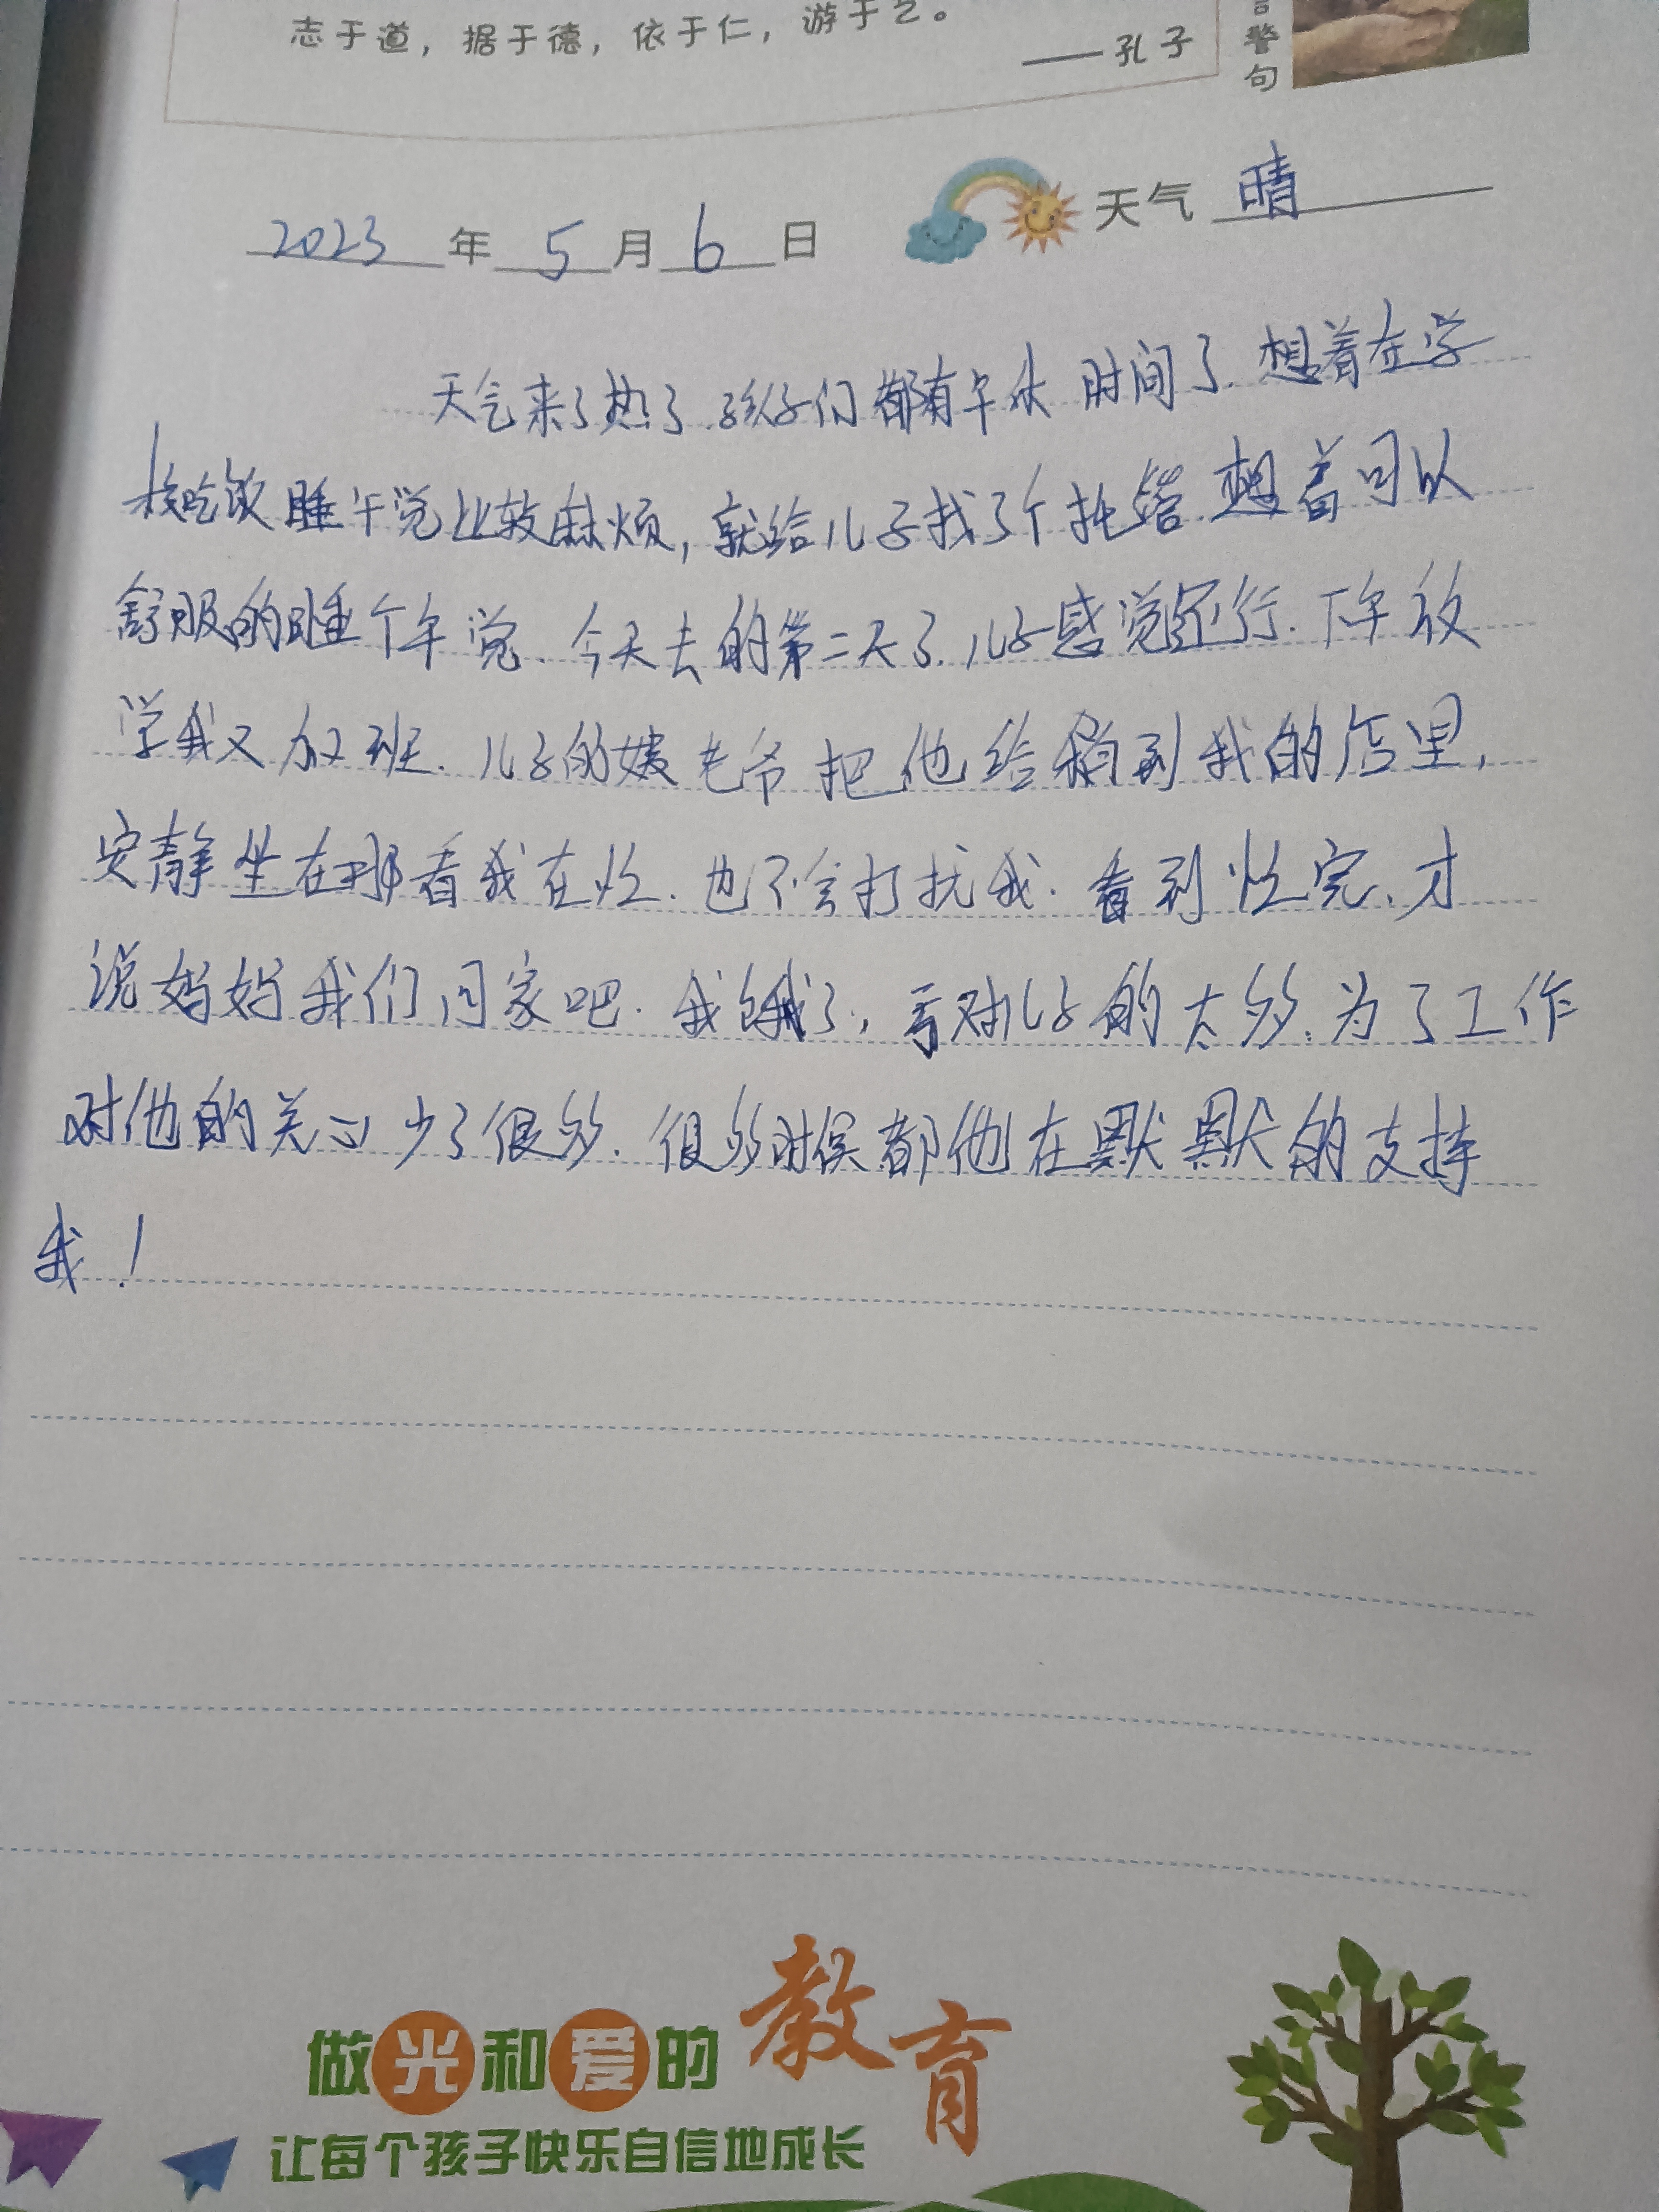 志于道，据于德，依于仁，游于艺。
——孔子
言警句
2023年5月6日 天气 晴
天气来了热了.孩子们都有午休时间了.想着在学
校吃饭睡午觉比较麻烦,就给儿子找了个托管.想着可以
舒服的睡个午觉.今天去的第二天了.儿子感觉还行.下午放
学我又加班.儿子的姨老爷把他给稍到我的店里,
安静坐在那看我在忙.也不会打扰我.看到忙完、才
说妈妈我们回家吧.我饿了,亏对儿子的太多.为了工作
对他的关心少了很多.很多时候都他在默默的支持
我!
做光和爱的教育
让每个孩子快乐自信地成长